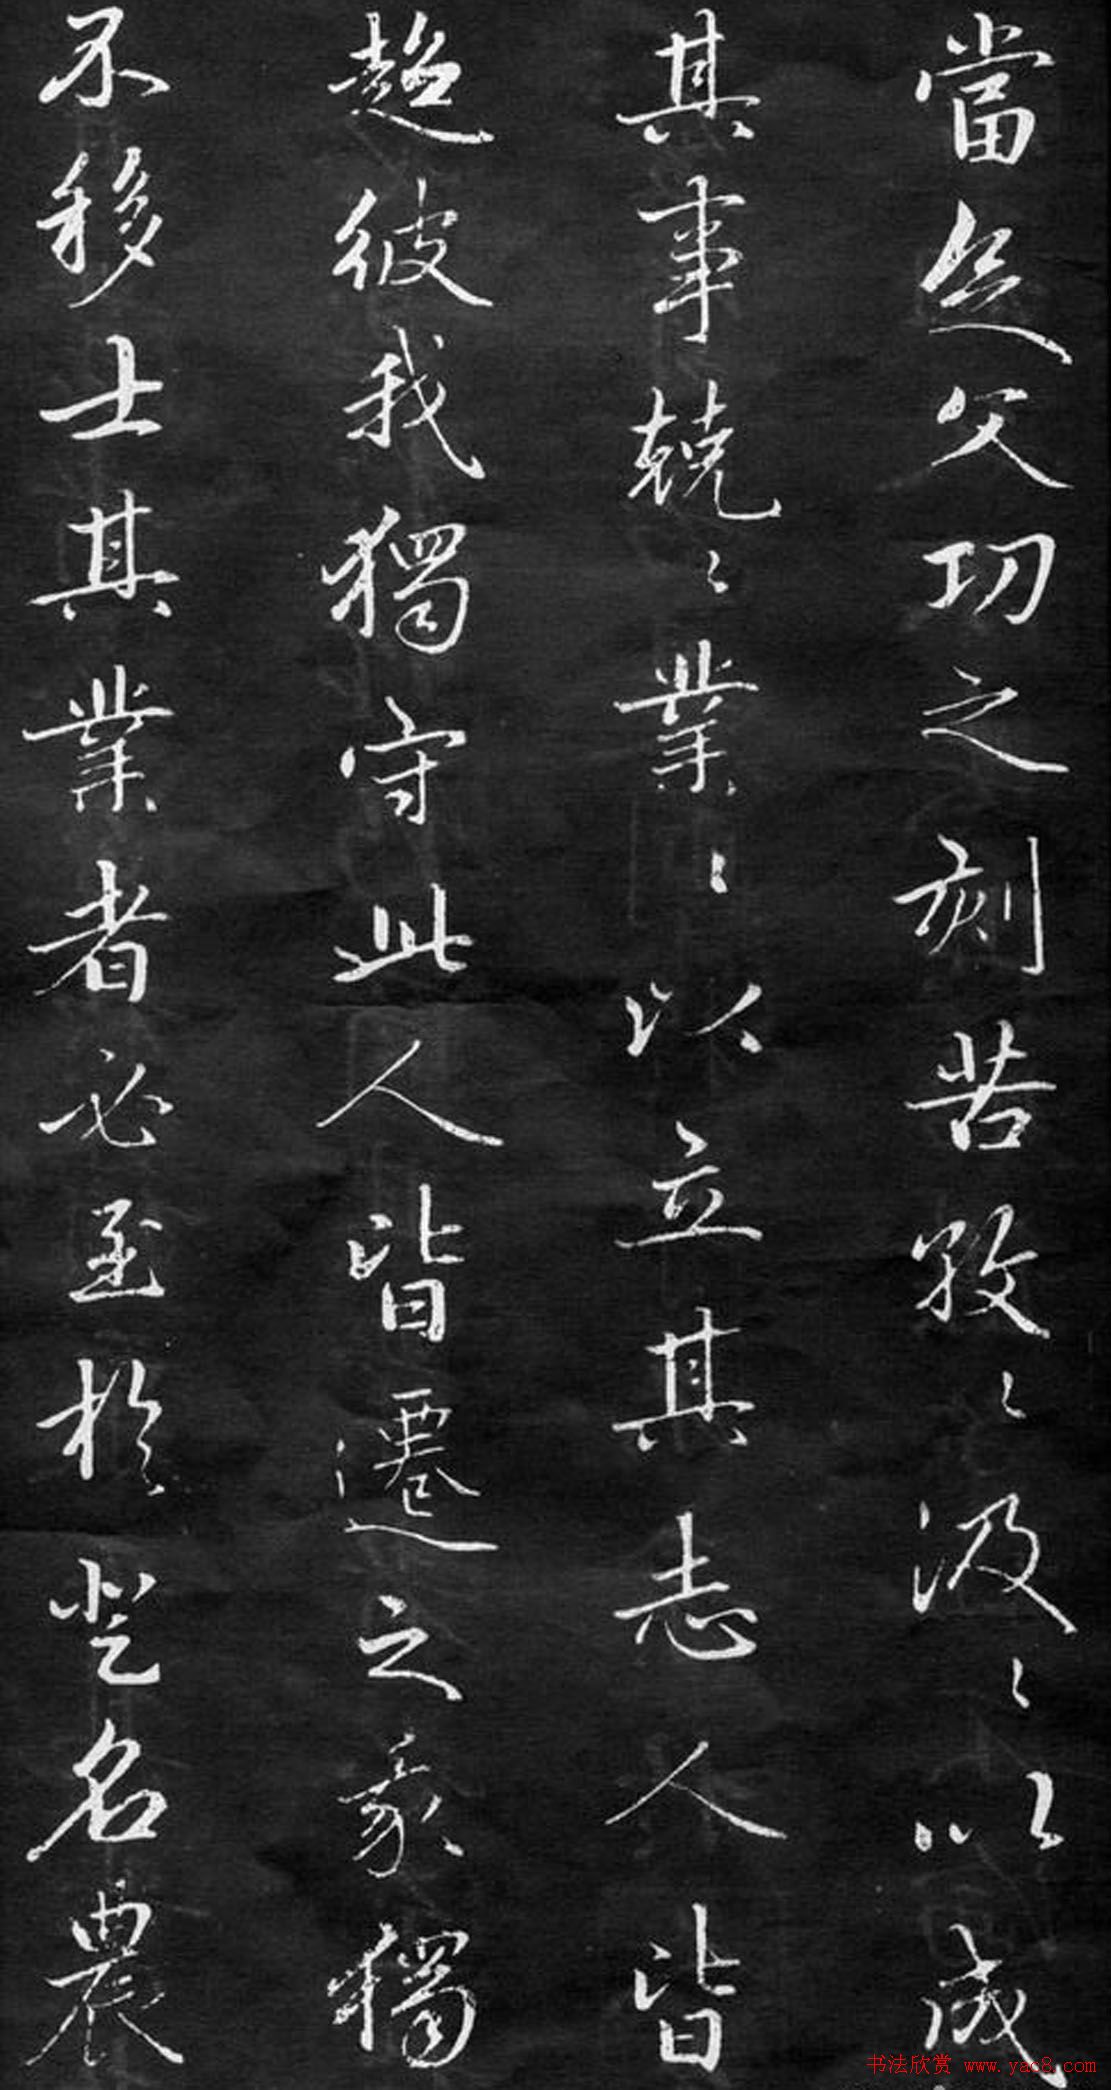 當念父功之刻苦孜〻汲〻以成
其事兢〻業〻以立其志人皆
趨彼我獨守此人皆遷之我獨
不移士其業者必至於登名農
书法欣赏 www.yac8.com